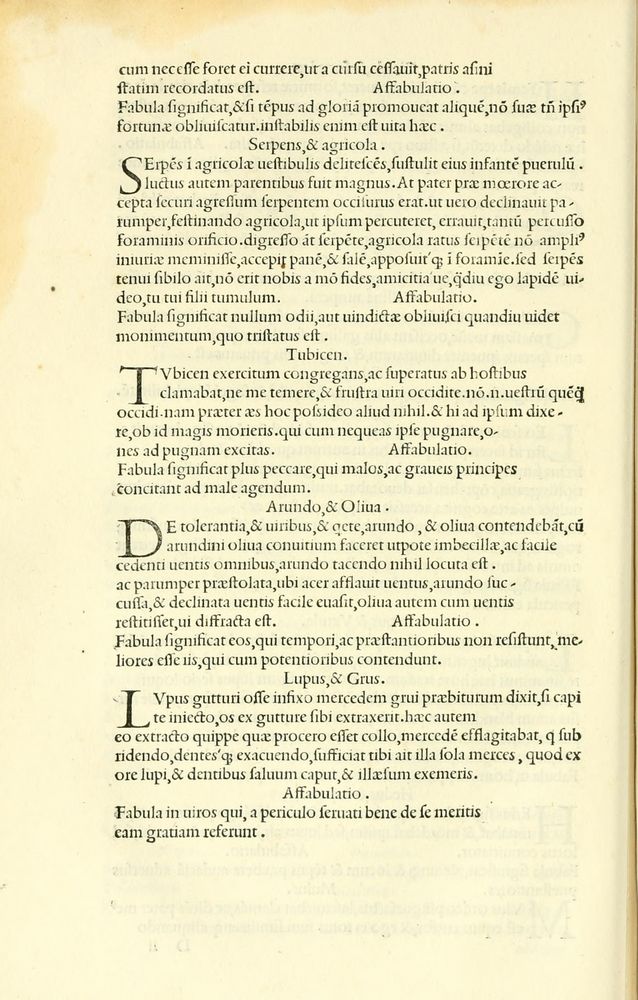 cum necesse foret ei currere,ut a cursu cessauit,patris asini
statim recordatus est. Affabulatio .
Fabula significat,&si tēpus ad gloriā promoueat aliquē,nō suæ tñ ipsiꝰ
fortunæ obliuiscatur.instabilis enim est uita hæc .
Serpens,& agricola .
SErpēs ī agricolæ uestibulis delitescēs,sustulit eius infantē puerulū .
luctus autem parentibus fuit magnus. At pater præ mœrore ac-
cepta securi agressum serpentem occisurus erat.ut uero declinauit pa-
rumper,festinando agricola,ut ipsum percuteret, errauit,tantū percusso
foraminis orificio.digresso āt serpēte,agricola ratus serpētē nō ampliꝰ
iniuriæ meminisse,accepit panē,& salē,apposuitq; ī foramīe.sed serpēs
tenui sibilo ait,nō erit nobis a mō fides,amicitia ue,q̄diu ego lapidē ui-
deo,tu tui filii tumulum. Affabulatio.
Fabula significat nullum odii,aut uindictæ obliuisci quandiu uidet
monimentum,quo tristatus est .
Tubicen.
TVbicen exercitum congregans,ac superatus ab hostibus
clamabat,ne me temere,& frustra uiri occidite.nō.n.uestrū quēq̄
occidi.nam præter æs hoc possideo aliud nihil.& hi ad ipsum dixe-
re,ob id magis morieris.qui cum nequeas ipse pugnare,o-
nes ad pugnam excitas. Affabulatio.
Fabula significat plus peccare,qui malos,ac graueis principes
concitant ad male agendum.
Arundo,& Oliua .
DE tolerantia,& uiribus,& q̇ete,arundo , & oliua contendebāt,cū
arundini oliua conuitium faceret utpote imbecillæ,ac facile
cedenti uentis omnibus,arundo tacendo nihil locuta est .
ac parumper præstolata,ubi acer afflauit uentus,arundo suc-
cussa,& declinata uentis facile euasit,oliua autem cum uentis
restitisset,ui diffracta est. Affabulatio .
Fabula significat eos,qui tempori,ac præstantioribus non resistunt, me-
liores esse iis,qui cum potentioribus contendunt.
Lupus,& Grus.
LVpus gutturi osse infixo mercedem grui præbiturum dixit,si capi
te iniecto,os ex gutture sibi extraxerit.hæc autem
eo extracto quippe quæ procero esset collo,mercedē efflagitabat, q̇ sub
ridendo,dentesq; exacuendo,sufficiat tibi ait illa sola merces , quod ex
ore lupi,& dentibus saluum caput,& illæsum exemeris.
Affabulatio .
Fabula in uiros qui, a periculo seruati bene de se meritis
eam gratiam referunt .